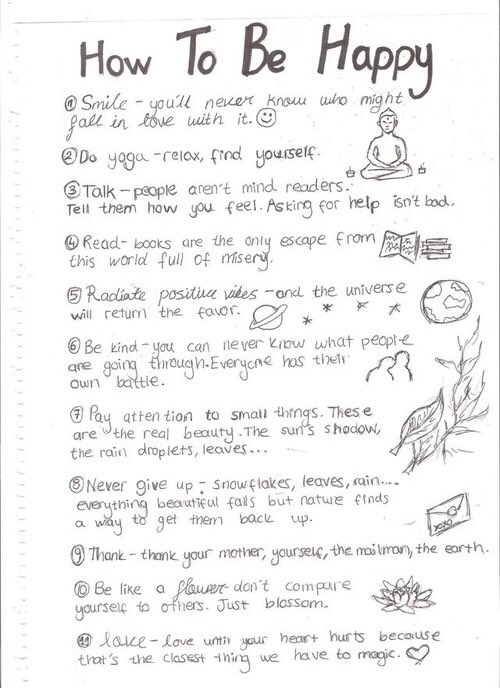 How To Be Happy
① Smile - you'll never know who might
fall in love with it. ☺
② Do yoga - relax, find yourself.
③ Talk - people aren't mind readers.
Tell them how you feel. Asking for help isn't bad.
④ Read - books are the only escape from
this world full of misery.
⑤ Radiate positive vibes - and the universe
will return the favor.
⑥ Be kind - you can never know what people
are going through. Everyone has their
own battle.
⑦ Pay attention to small things. These
are the real beauty. The sun's shadow,
the rain droplets, leaves...
⑧ Never give up - snowflakes, leaves, rain....
everything beautiful falls but nature finds
a way to get them back up.
xoxo
⑨ Thank - thank your mother, yourself, the mailman, the earth.
⑩ Be like a flower - don't compare
yourself to others. Just blossom.
⑪ Love - love until your heart hurts because
that's the closest thing we have to magic. ♡